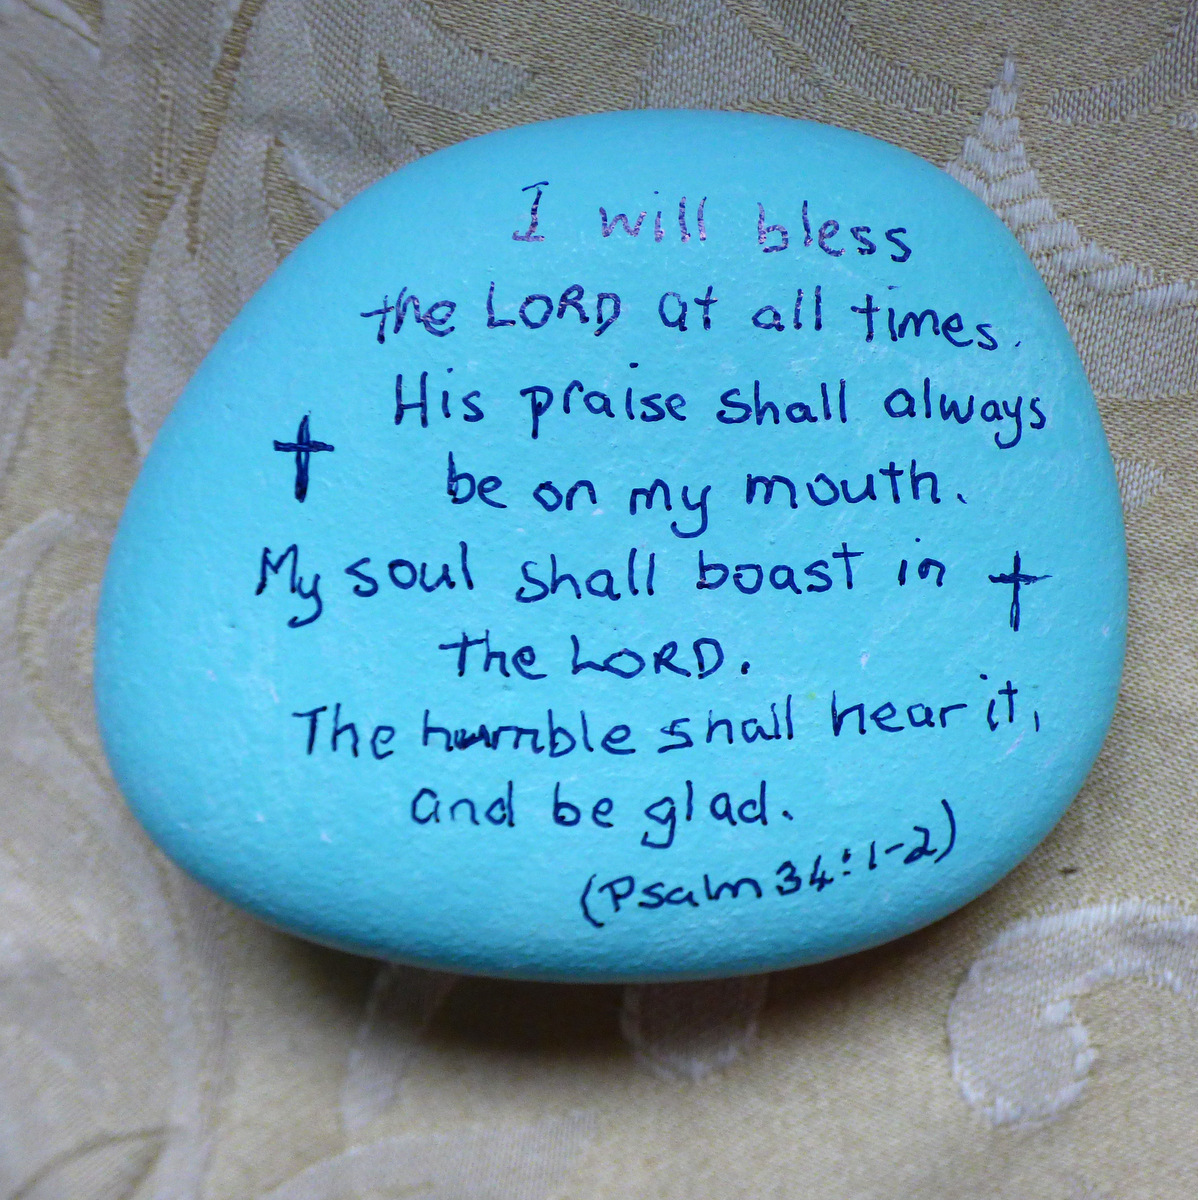 I will bless
the LORD at all times.
His praise shall always
be on my mouth.
My soul shall boast in
the LORD.
The humble shall hear it,
and be glad.
(Psalm 34:1-2)